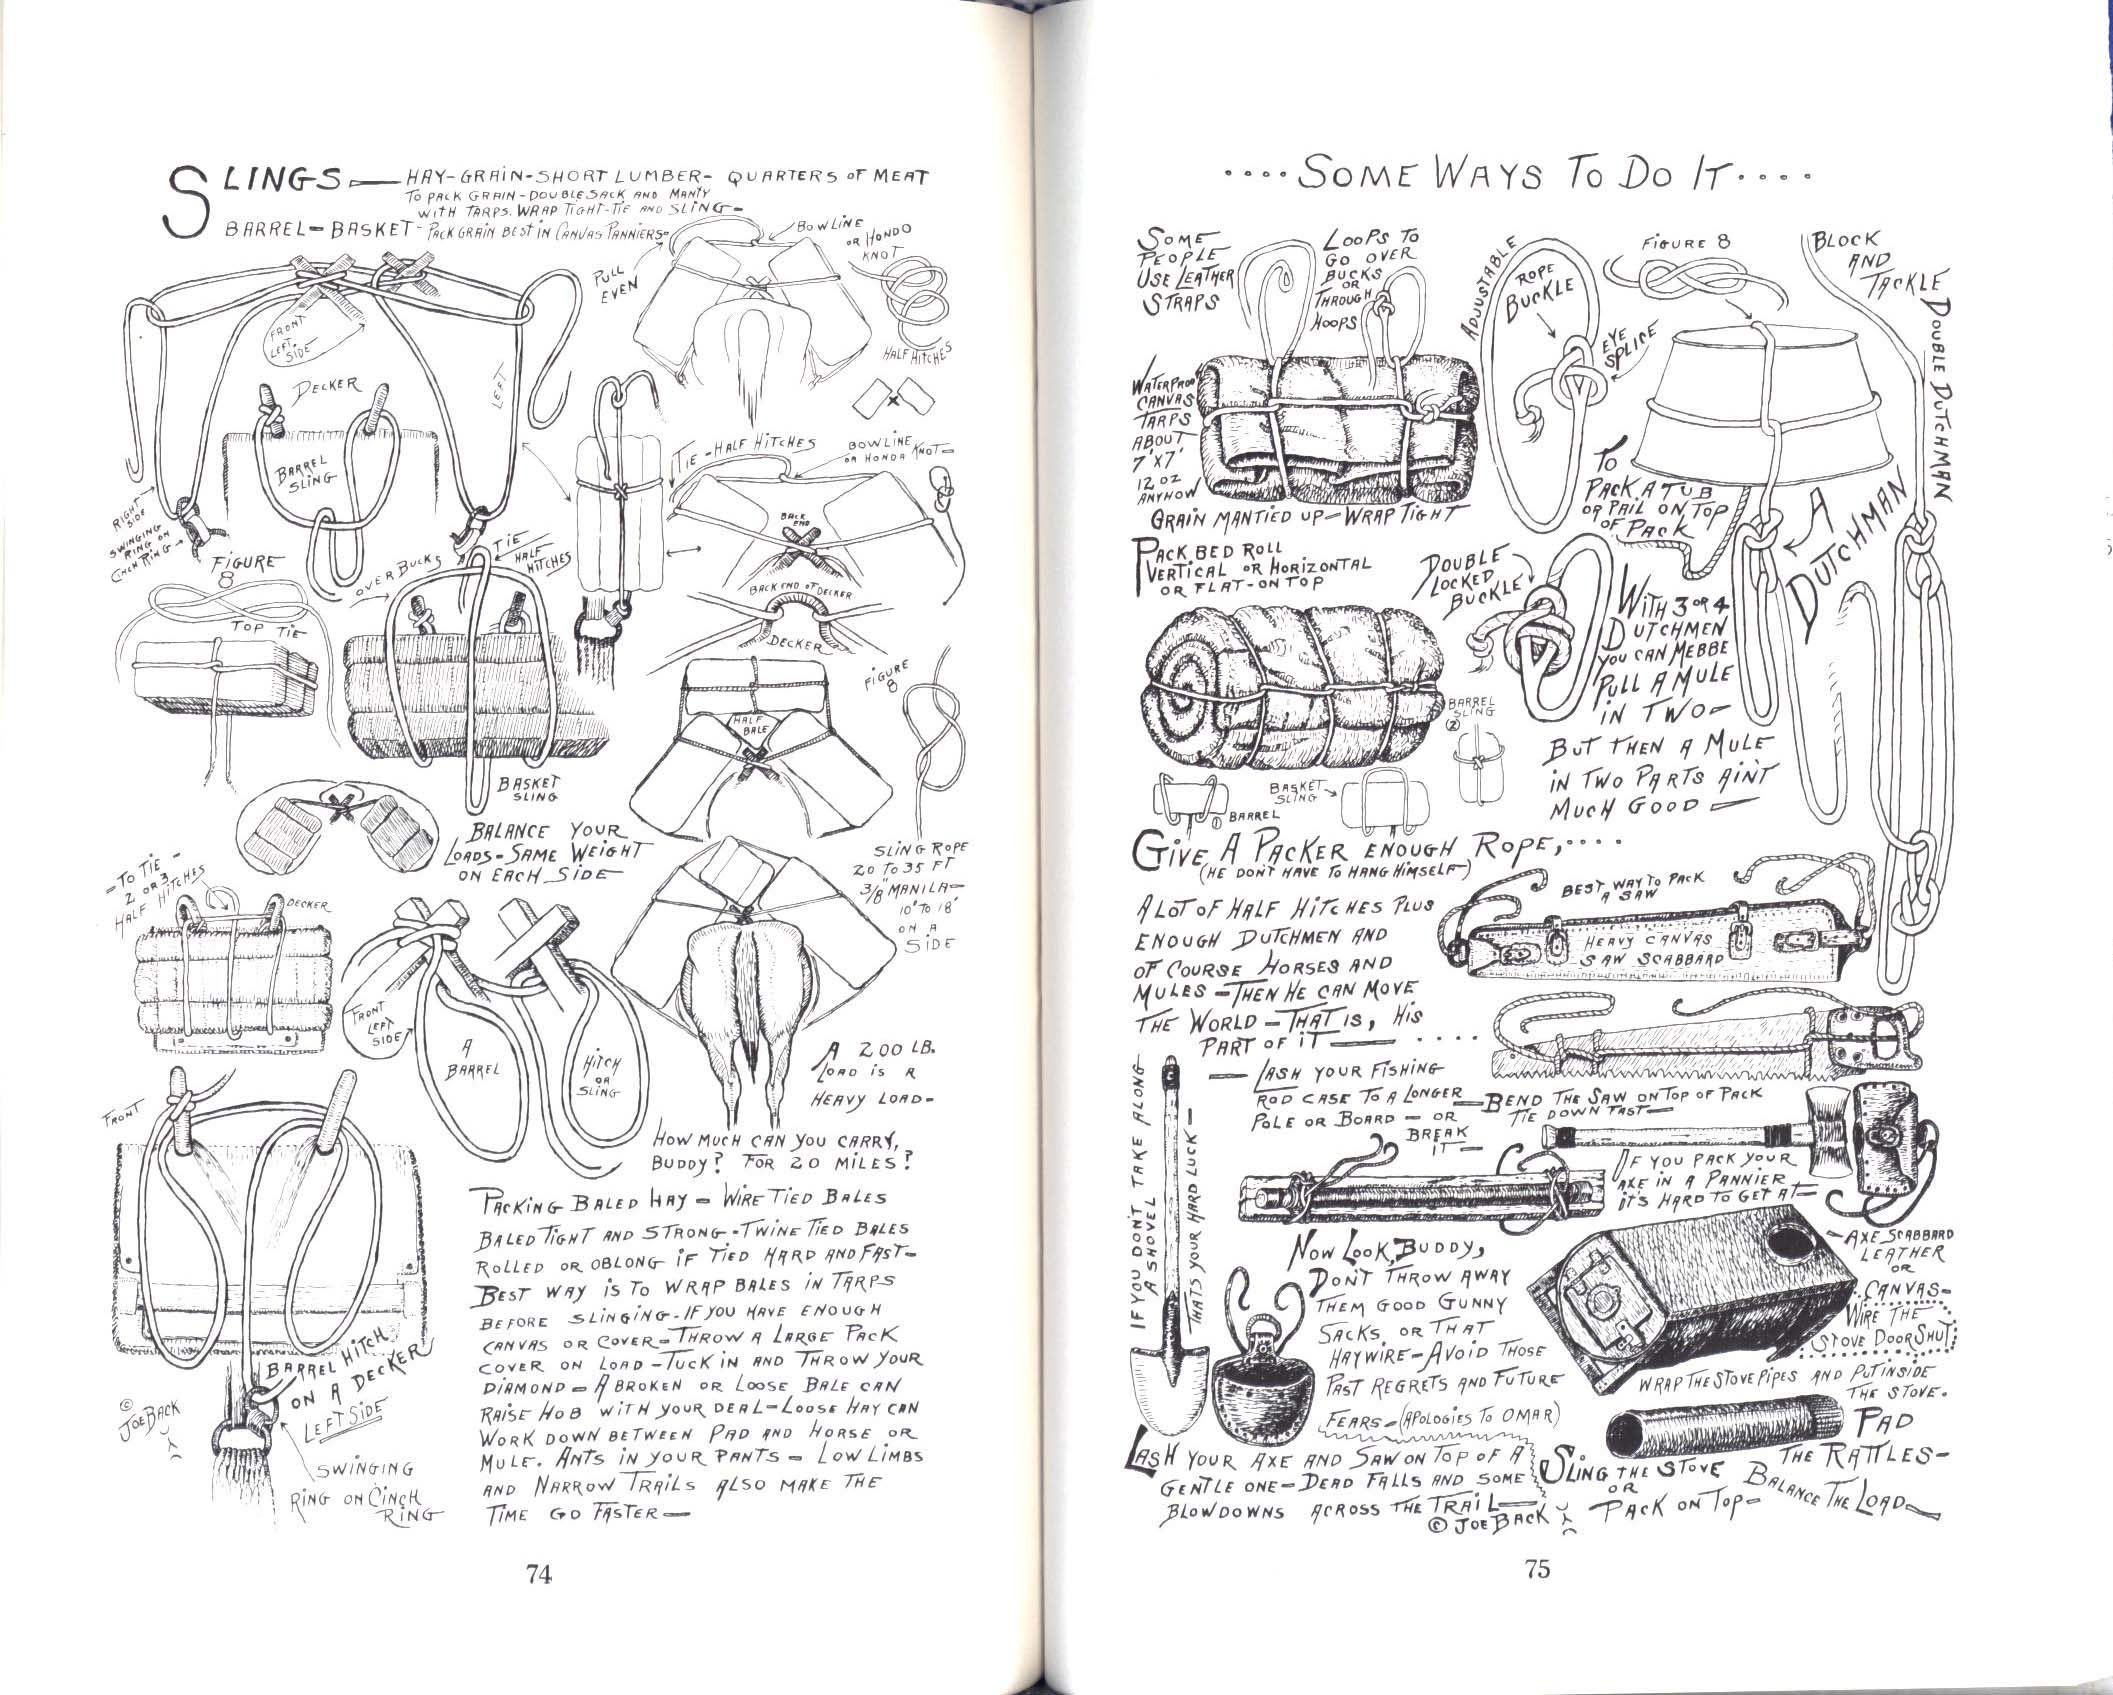 SLINGS — HAY-GRAIN-SHORT LUMBER- QUARTERS OF MEAT
TO PACK GRAIN-DOUBLE SACK AND MANTY
WITH TARPS. WRAP TIGHT-TIE AND SLING-
BARREL-BASKET-PACK GRAIN BEST IN CANVAS PANNIERS-
PULL
EVEN
BOWLINE
OR HONDO
KNOT
HALF HITCHES
FRONT
LEFT
SIDE
LEFT
DECKER
BARREL
SLING
RIGHT
SIDE
SWINGING
RING ON
CINCH RING
TIE-HALF HITCHES
BOWLINE
OR HONDA KNOT-
BACK
END
FIGURE
8
OVER BUCKS
TIE
HALF
HITCHES
BACK END OF DECKER
DECKER
TOP TIE
FIGURE
8
HALF
BALE
BASKET
SLING
BALANCE YOUR
LOADS-SAME WEIGHT
ON EACH SIDE
SLING ROPE
20 TO 35 FT
3/8" MANILA-
10' TO 18'
ON A
SIDE
-TO TIE-
2 OR 3
HALF HITCHES
DECKER
FRONT
LEFT
SIDE
A
BARREL
HITCH
OR
SLING
A 200 LB.
LOAD IS A
HEAVY LOAD-
HOW MUCH CAN YOU CARRY,
BUDDY? FOR 20 MILES?
FRONT
BARREL HITCH
ON A DECKER
LEFT SIDE
SWINGING
RING ON CINCH
RING
© JOE BACK
PACKING BALED HAY - WIRE TIED BALES
BALED TIGHT AND STRONG-TWINE TIED BALES
ROLLED OR OBLONG IF TIED HARD AND FAST-
BEST WAY IS TO WRAP BALES IN TARPS
BEFORE SLINGING-IF YOU HAVE ENOUGH
CANVAS OR COVER-THROW A LARGE PACK
COVER ON LOAD-TUCK IN AND THROW YOUR
DIAMOND-A BROKEN OR LOOSE BALE CAN
RAISE HOB WITH YOUR DEAL-LOOSE HAY CAN
WORK DOWN BETWEEN PAD AND HORSE OR
MULE. ANTS IN YOUR PANTS - LOW LIMBS
AND NARROW TRAILS ALSO MAKE THE
TIME GO FASTER-
74
....SOME WAYS TO DO IT....
SOME
PEOPLE
USE LEATHER
STRAPS
LOOPS TO
GO OVER
BUCKS
OR
THROUGH
HOOPS
ADJUSTABLE
ROPE
BUCKLE
EYE
SPLICE
FIGURE 8
BLOCK
AND
TACKLE
DOUBLE DUTCHMAN
WATERPROOF
CANVAS
TARPS
ABOUT
7'X7'
12 OZ
ANYHOW
GRAIN MANTIED UP-WRAP TIGHT
TO
PACK A TUB
OR PAIL ON TOP
OF PACK
A
DUTCHMAN
PACK BED ROLL
VERTICAL OR HORIZONTAL
OR FLAT-ON TOP
DOUBLE
LOCKED
BUCKLE
WITH 3 OR 4
DUTCHMEN
YOU CAN MEBBE
PULL A MULE
IN TWO-
BUT THEN A MULE
IN TWO PARTS AIN'T
MUCH GOOD-
BARREL
SLING
2
1 BARREL
BASKET
SLING
GIVE A PACKER ENOUGH ROPE,....
(HE DON'T HAVE TO HANG HIMSELF)
A LOT OF HALF HITCHES PLUS
ENOUGH DUTCHMEN AND
OF COURSE HORSES AND
MULES-THEN HE CAN MOVE
THE WORLD-THAT IS, HIS
PART OF IT- ....
BEST WAY TO PACK
A SAW
HEAVY CANVAS
SAW SCABBARD
-LASH YOUR FISHING
ROD CASE TO A LONGER
POLE OR BOARD - OR
BREAK
IT-
-BEND THE SAW ON TOP OF PACK
TIE DOWN FAST-
IF YOU DON'T TAKE ALONG
A SHOVEL
THATS YOUR HARD LUCK-
IF YOU PACK YOUR
AXE IN A PANNIER
IT'S HARD TO GET AT-
-AXE SCABBARD
LEATHER
OR
CANVAS-
NOW LOOK, BUDDY,
DON'T THROW AWAY
THEM GOOD GUNNY
SACKS, OR THAT
HAYWIRE-AVOID THOSE
PAST REGRETS AND FUTURE
FEARS-(APOLOGIES TO OMAR)
WIRE THE
STOVE DOOR SHUT
WRAP THE STOVE PIPES AND PUT INSIDE
THE STOVE.
PAD
THE RATTLES-
BALANCE THE LOAD
LASH YOUR AXE AND SAW ON TOP OF A
GENTLE ONE-DEAD FALLS AND SOME
BLOWDOWNS ACROSS THE TRAIL-
SLING THE STOVE
OR
PACK ON TOP-
© JOE BACK
75